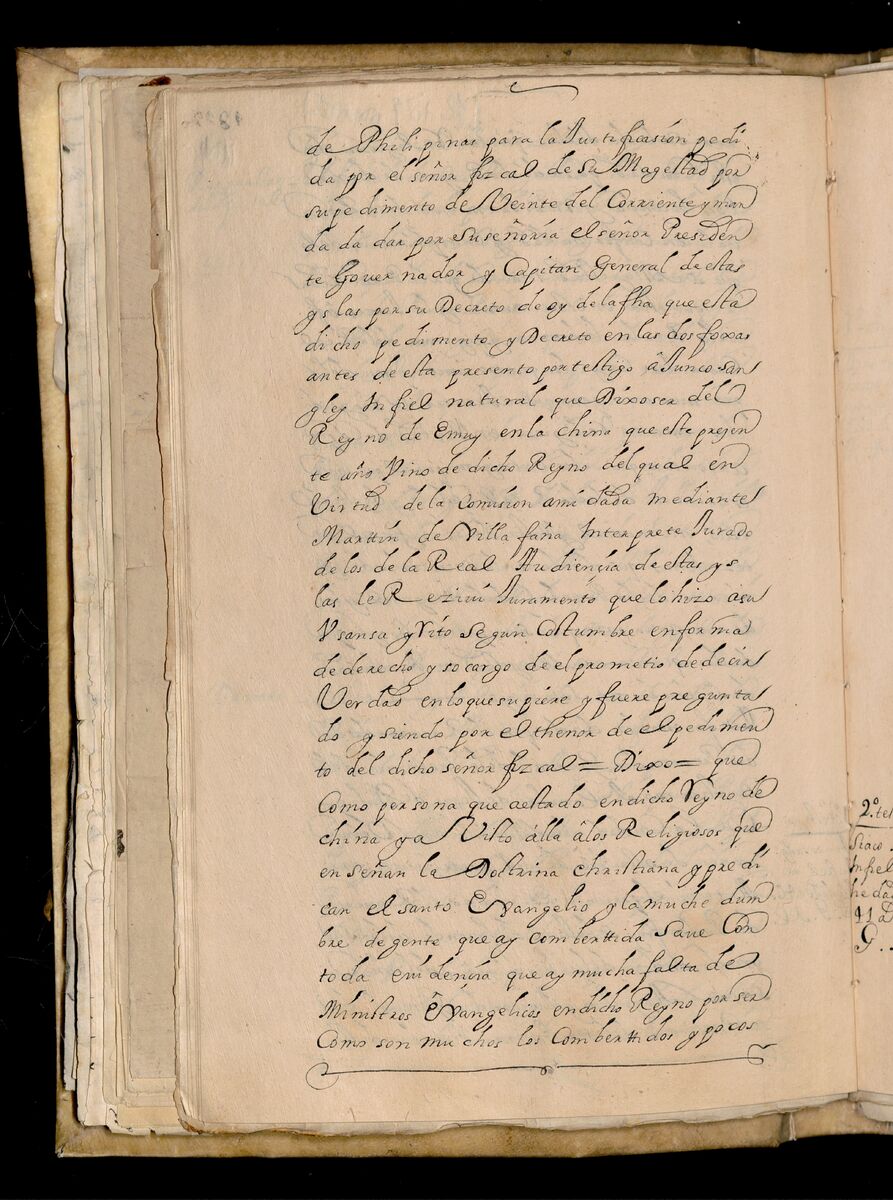 de Philipinas para la Justificasion pedi
da por el señor fizcal de su Magestad por
su pedimento de Veinte del Corriente y man
da da dar por su señoria el señor Presiden
te Gover nador y Capitan General de estas
ys las por su Decreto de oy de la fha que esta
dicho pedimento y Decreto en las dos foxas
antes de esta presento por testigo â Junco san
gley Infiel natural que Dixo ser del
Rey no de Emuy en la china que este presen
te año Vino de dicho Reyno del qual en
Virtud de la Comision ami dada mediante
Marttin de Villa faña Interprete Jurado
de los de la Real Audiençia de estas ys
las le Rezivi Juramento que lo hizo a su
Vsansa y Rito segun Costumbre en forma
de derecho y so cargo de el prometio de decir
Verdad en lo que supiere y fuere pregunta
do y siendo por el thenor de el pedimen
to del dicho señor fizcal = Dixo = que
Como persona que a estado en dicho Reyno de
china y a Visto alla â los Religiosos que
en señan la Doctrina christiana y predi
can el santo Evangelio y la muche dum
bre de gente que ay comberttida save Con
toda evidençia que ay mucha falta de
Ministros Evangelicos en dicho Reyno por ser
Como son muchos los Comberttidos y pocos
2.º
siaco
Infiel
he
11 a
G..